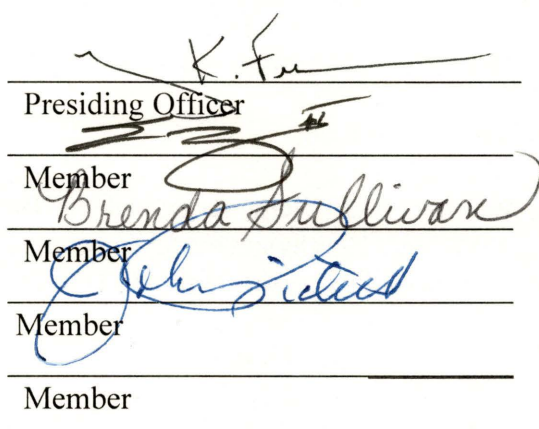 K.
Presiding Officer
Member
Brenda Sullivan
Member
John
Member
Member